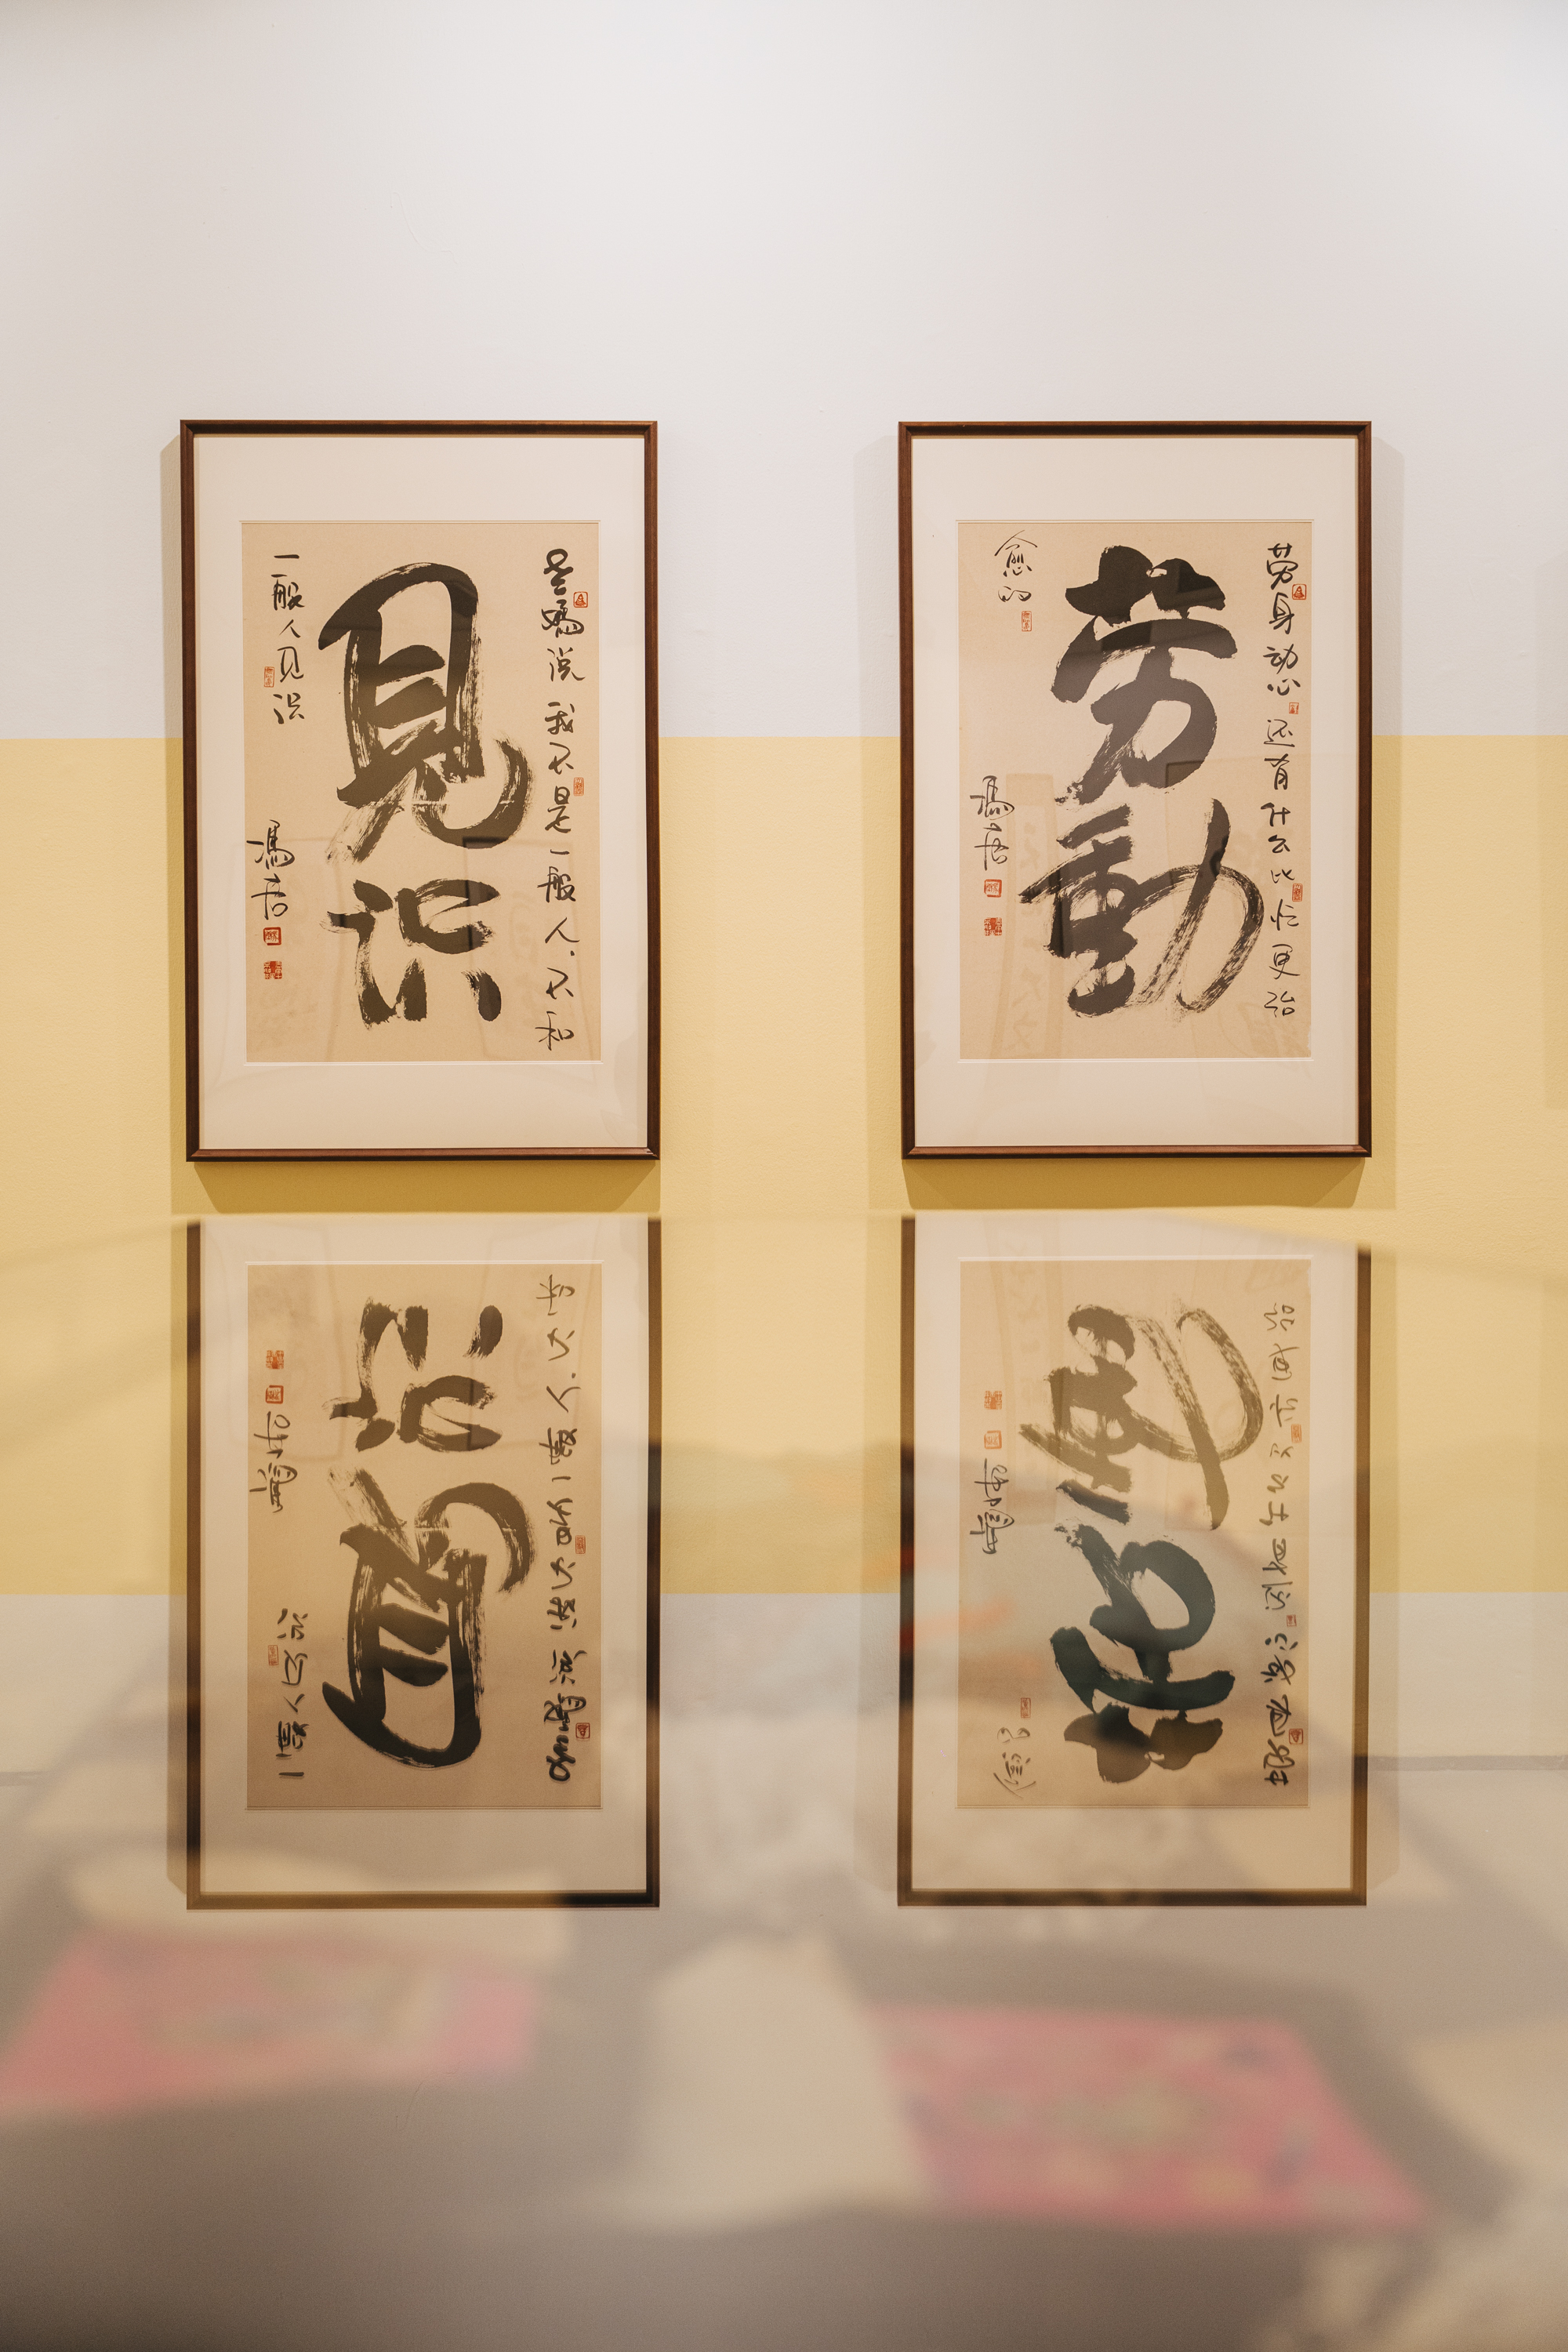 老媽说我不是一般人.不和
見识
一般人见识
馮唐
劳身动心还有什么比忙更治
劳動
愈的
馮唐